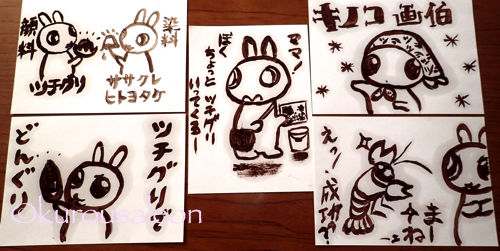 顔料
ツチグリ
染料
ササクレ
ヒトヨタケ
ママ!
ぼく
ちょっとツチグリ
いってくるー
キノコ画伯
ツチグリと
どんぐり
えっ!成功?
まー
ねー
©kurousaloon